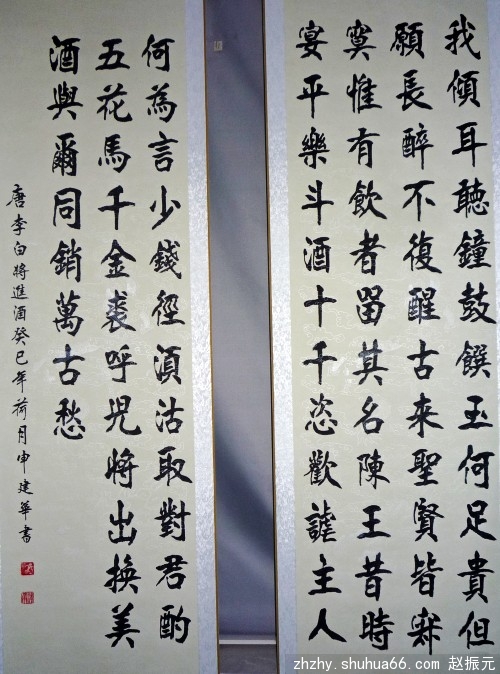 我傾耳聽鐘鼓饌玉何足貴但
願長醉不復醒古来聖賢皆寂
寞惟有飲者留其名陳王昔時
宴平樂斗酒十千恣歡謔主人
何為言少錢徑須沽取對君酌
五花馬千金裘呼兒將出換美
酒與爾同銷萬古愁
唐李白將進酒癸巳年荷月申建華書
zhzhy.shuhua66.com 赵振元